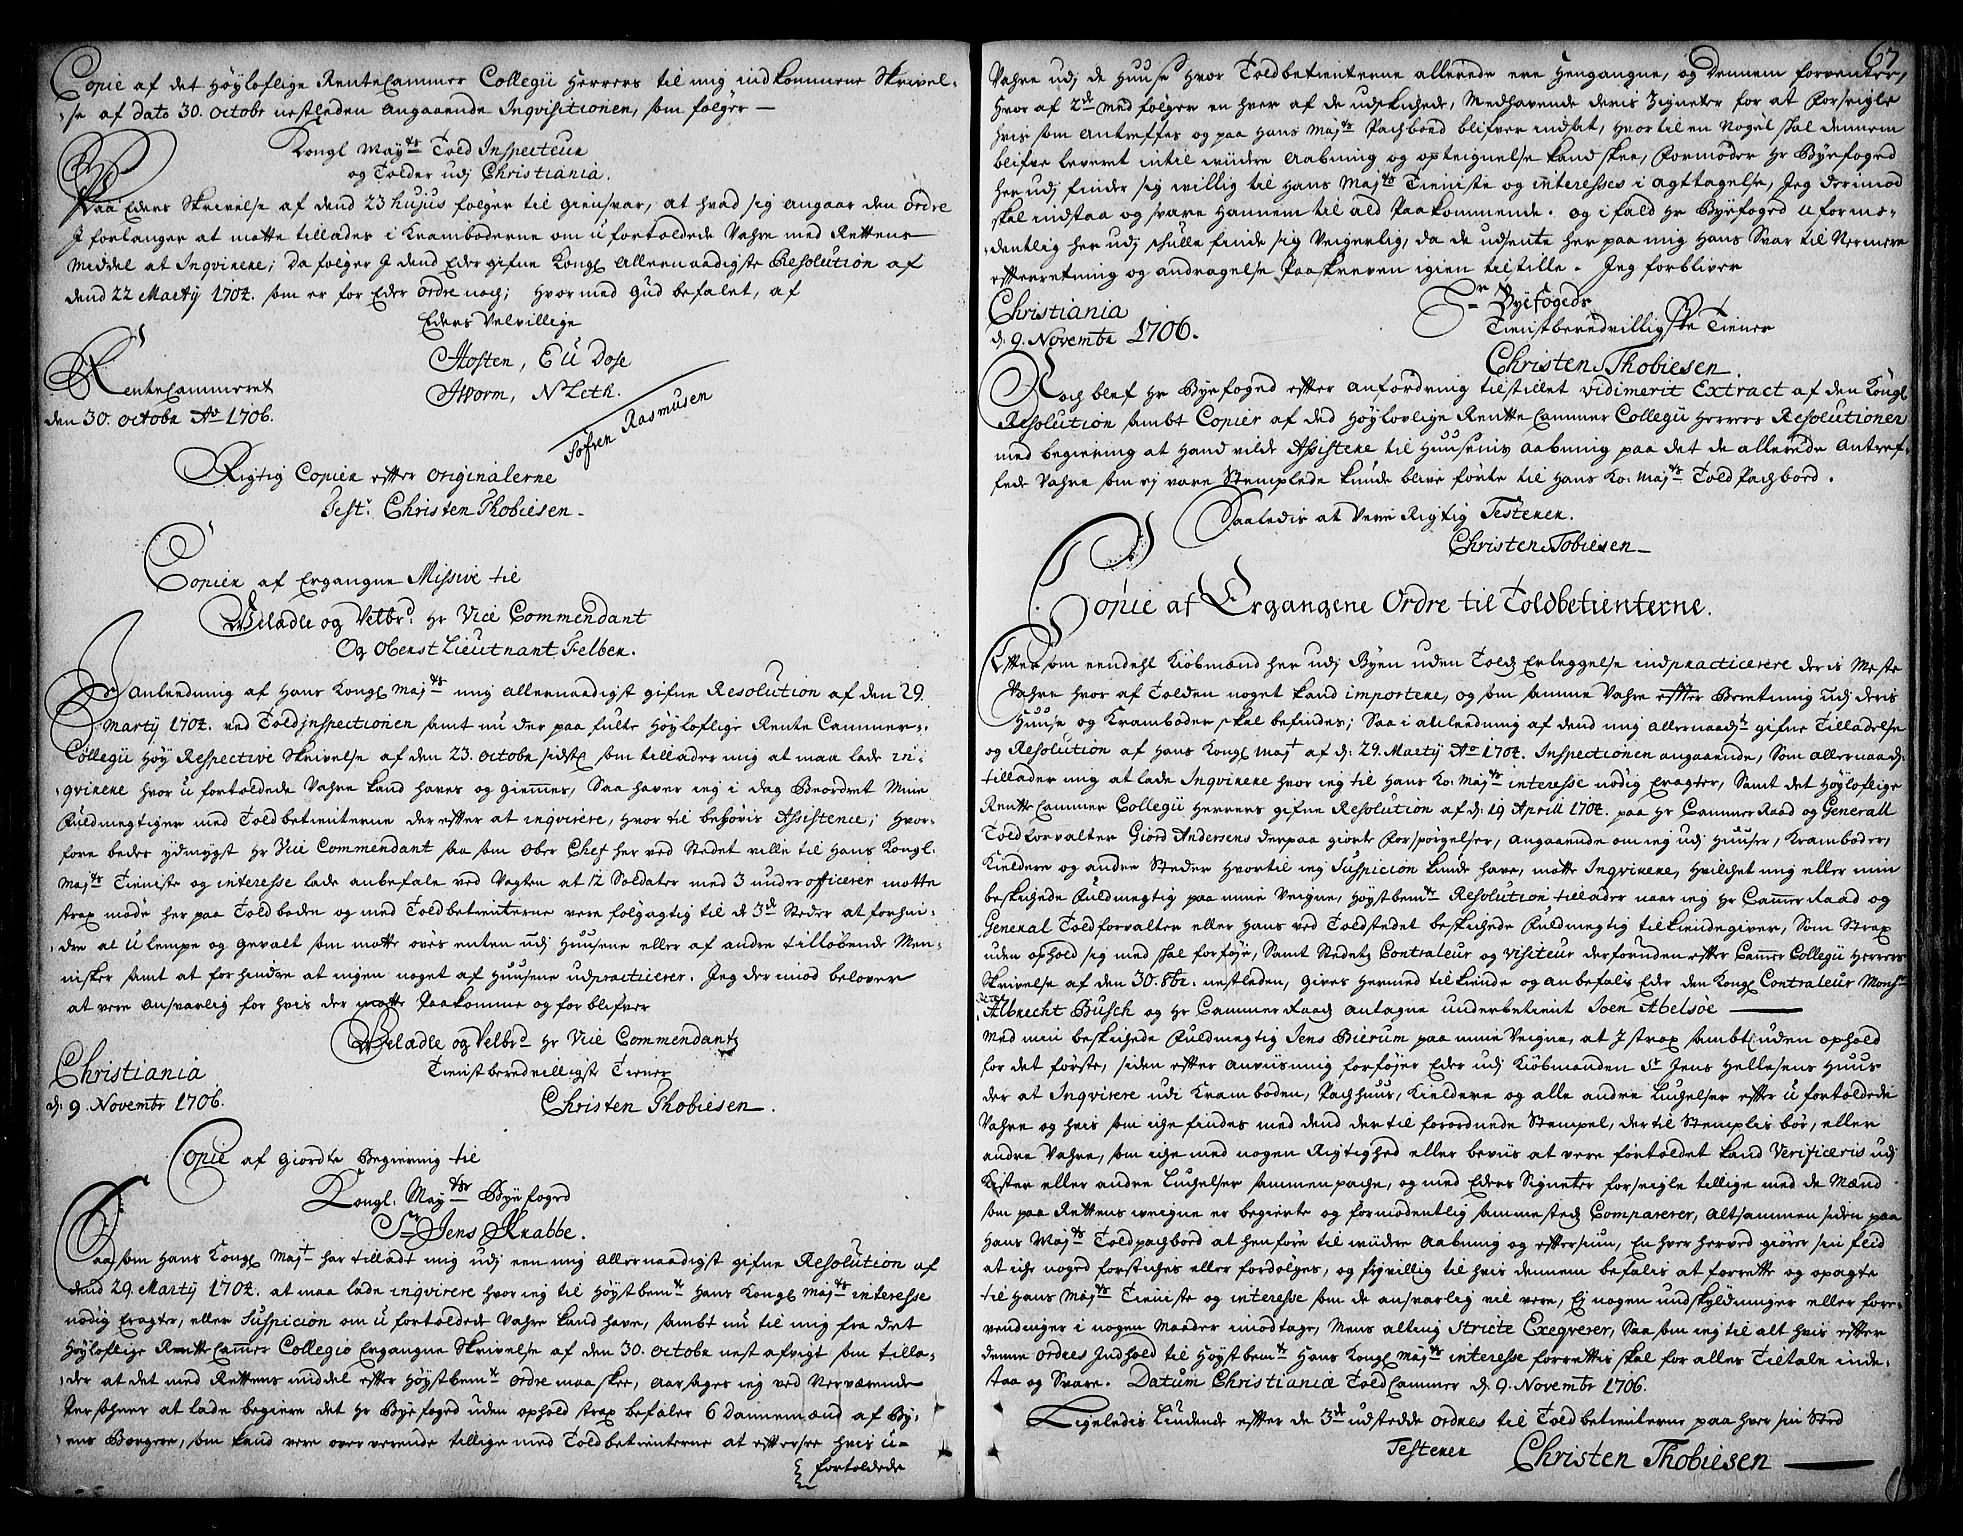 Copie af det Høyloflige RenteCammer Collegii Herrers til mig indkommene Skrivel-
se af dato 30. octobr nestleden angaaende Inqvisitionen, som følger —
Kongl Mayts Told Inspecteur
og Tolder udj Christiania.
Paa Eders Skrivelse af dend 23 hujus følger til giensvar, at hvad sig angaar den ordre
I forlanger at motte tillades i Kramboderne om u fortoldede Vahre med Rettens
Middel at Inqvirere; Da følger I dend Eder gifne Kongl Allernaadigste Resolution af
dend 22 Martij 1704. som er for Eder ordre nock; hvormed Gud befalet, af
Eders Velvillige
Hosten, E U Dose
Worm, N Leth.
Søfren Rasmusen
RenteCammeret
den 30. octobr Ao 1706.
Rigtig Copien efter originalerne
Test. Christen Thobiesen -
Copien af Ergangne Missive til
Velædle og Velbr. Hr Vice Commendant
Og Oberst Lieutnant Felber.
J anledning af Hans Kongl Majts mig allernaadigst gifne Resolution af den 29.
Martij 1704. ved Toldjnspectionen samt nu der paa fulte Høyloflige Rente Cammer-
Collegii Høy Respective Skrivelse af den 23. octobr sidste som tillader mig at maa lade in-
qvirere hvor u fortoldede Vahre kand haves og giemmes, Saa haver ieg i dag Beordret Mine
Fuldmegtiger med Toldbetienterne der efter at inqvirere, hvor til behøvis Assistence; hvor-
fore bedes ydmygst Hr Vice Commendant saa som Ober Chef her ved Stedet ville til Hans Kongl.
Majts Tieniste og interesse lade anbefale ved Vagten at 12 Soldater med 3 underofficerer motte
strax møde her paa Toldboden og med Toldbetienterne vere følgagtig til de 3de Steder at forhin-
dre al u lempe og gevalt som motte øves enten udj Huusene eller af andre tilløbende Men-
nisker samt at forhindre at ingen noget af Huusene udpracticerer. Jeg derimod belover
at vere ansvarlig for hvis der motte Paakomme og forblifver
Velædle og Velbr. Hr Vice Commendants
Tienstberedvilligste Tiener
Christiania
d. 9. Novembr 1706.
Christen Thobiesen.
Copie af giordte Begiering til
Kongl. Mayts Byefoged
Sr Jens Knabbe.
Saa som Hans Kongl Majt har tilladt mig udj een mig Allernaadigst gifne Resolution af
dend 29. Martij 1704. at maa lade inqvirere hvor ieg til Høystbemte Hans Kongl Majts interesse
nødig eragter, eller Suspicion om u fortoldede Vahre kand have, sambt nu til mig fra det
Høyloflige RentteCammer Collegio Ergangne Skrivelse af den 30. octobr nest afvigt som tilla-
der at det med Rettens middel efter Høystbemte ordre maa skee, aarsages ieg ved Nerværende
Personer at lade begiere det Hr Byefoged uden ophold strax befaler 6 Dannemænd af By-
ens Borgere, som kand vere oververende tillige med Toldbetienterne at eftersee hvis u-
fortoldede
67
Vahre udj de Huuse hvor Toldbetienterne allerede ere hengangne, og dennem forventer,
Hvor af 2de med følger en hver af de udskichede, Medhavende deris Zigneter for at forseigle
hvis som antreffes og paa Hans Majts Pachboed blifver indsat, hvortil en Nøgel skal dennem
blifve leveret intil viidere aabning og opteignelse kand skee, formoder Hr Byefoged
her udj finder sig willig til Hans Majts Tieniste og interesses i agttagelse, Jeg derimod
skal indstaa og svare hannem til ald Paakommende. og i fald Hr Byefoged u formo-
dentlig her udj skulle finde sig Veigerlig, da de udsente her paa mig Hans Svar til Nermere
efterretning og andragelse Paaskreven igien tilstille. Jeg forbliver
Hr Byefogeds
Tienstberedvilligste Tiener
Christiania
d. 9. Novembr 1706.
Christen Thobiesen.
Noch blef Hr Byefoged efter anfordring tilstillet vidimerit Extract af den Kongl
Resolution sambt Copier af det Høylovlige RentteCammer Collegii Herrers Resolutioner
med begiering at Hand vilde Assistere til Huusenis aabning paa det de allerede Antref-
fede Vahre som ej vare Stemplede kunde blive førte til Hans Ko. Majts Told Pachbod.
Saaledis at Vere Rigtig Testerer.
Christen Tobiesen —
Copie af Ergangene Ordre til Toldbetienterne.
Efter som eendehl Kiøbmænd her udj Byen uden Told Erleggelse indpracticerere deris meste
Vahre hvor af Tolden noget kand importere, og som samme Vahre efter Beretning udj deris
Huuse og Kramboder skal befindes; Saa i anledning af dend mig allernaadt gifne Tilladelse
og Resolution af Hans Kongl Majt af d. 29. Martij Ao 1704. Inspectionen angaaende, som allernaadt
tillader mig at lade Inqvirere hvor ieg til Hans Ko. Majts interesse nødig eragter, Samt det Høyloflige
RentteCammer Collegii Herrers gifne Resolution af d. 19 Aprill 1704. paa Hr CammerRaad og Generall
Toldforvalter Giord Andersens derpaa giorte forspørgelser, angaaende om ieg udj Huuser, Kramboder,
Kieldere og andre Steder hvortil ieg Suspicion kunde have, motte Inqvirere, hvilchet mig eller min
beskichede Fuldmegtig paa mine Veigne, Høystbemte Resolution tillader naar ieg Hr Cammer Raad og
General Toldforvalter eller Hans ved Toldstedet beskichede Fuldmegtig tilkiendegiver, som strax
uden ophold sig med skal forføje, Samt Stedets Contraleur og Visiteur desforuden efter Cammer Collegii Herrers
Skrivelse af den 30. 8br. nestleden, gives hermed tilkiende og anbefalis Eder den Kongl Contraleur Monsr
Albrecht Busch og Hr CammerRaads antagne underbetient Joen Abelsøe —
Med min beskichede Fuldmegtig Jens Bierum paa mine Veigne, at I strax sambt uden ophold
for det første, siden efter anviisning forføjer Eder udj Kiøbmanden Sr Jens Hellesens Huus
der at Inqvirere udi Kramboden, Pachhuus, Kieldere og alle andre Luchelser efter u fortoldede
Vahre og hvis som iche findes med dend der til forordnede Stempel, der til Stemplis bør, eller
andre Vahre, som iche med nogen Rigtighed eller beviis at vere fortoldet kand Verificeris udj
Kister eller andre Luchelser sammenpache, og med Eders Signeter forseigle tillige med de Mænd
som paa Rettens weigne er begierte og formodentlig sammesteds Comparerer, altsammen siden paa
Hans Majts Toldpachbod at henføre til wiidere aabning og eftersiun, En hver herved giører sin Eeid
at iche noged forstiches eller fordølges, og frjvillig til hvis dennem befalis at forrette og opagte
til Hans Majts Tieniste og interesse som de ansvarlig vil vere, Ej nogen undskyldninger eller fore-
vendinger i nogen Maader imodtage, Mens alting Stricte Exeqverer, Saa som ieg til alt hvis efter
denne ordres Jndhold til Høystbemte Hans Kongl Majts interesse forrettis skal for alles Tiltale inde-
staa og Svare. Datum Christianiæ ToldCammer d. 9. Novembr 1706.
Ligeledis liudende efter de 3de udstedde ordres til Toldbetienterne paa hver sin Sted
Testerer Christen Thobiesen